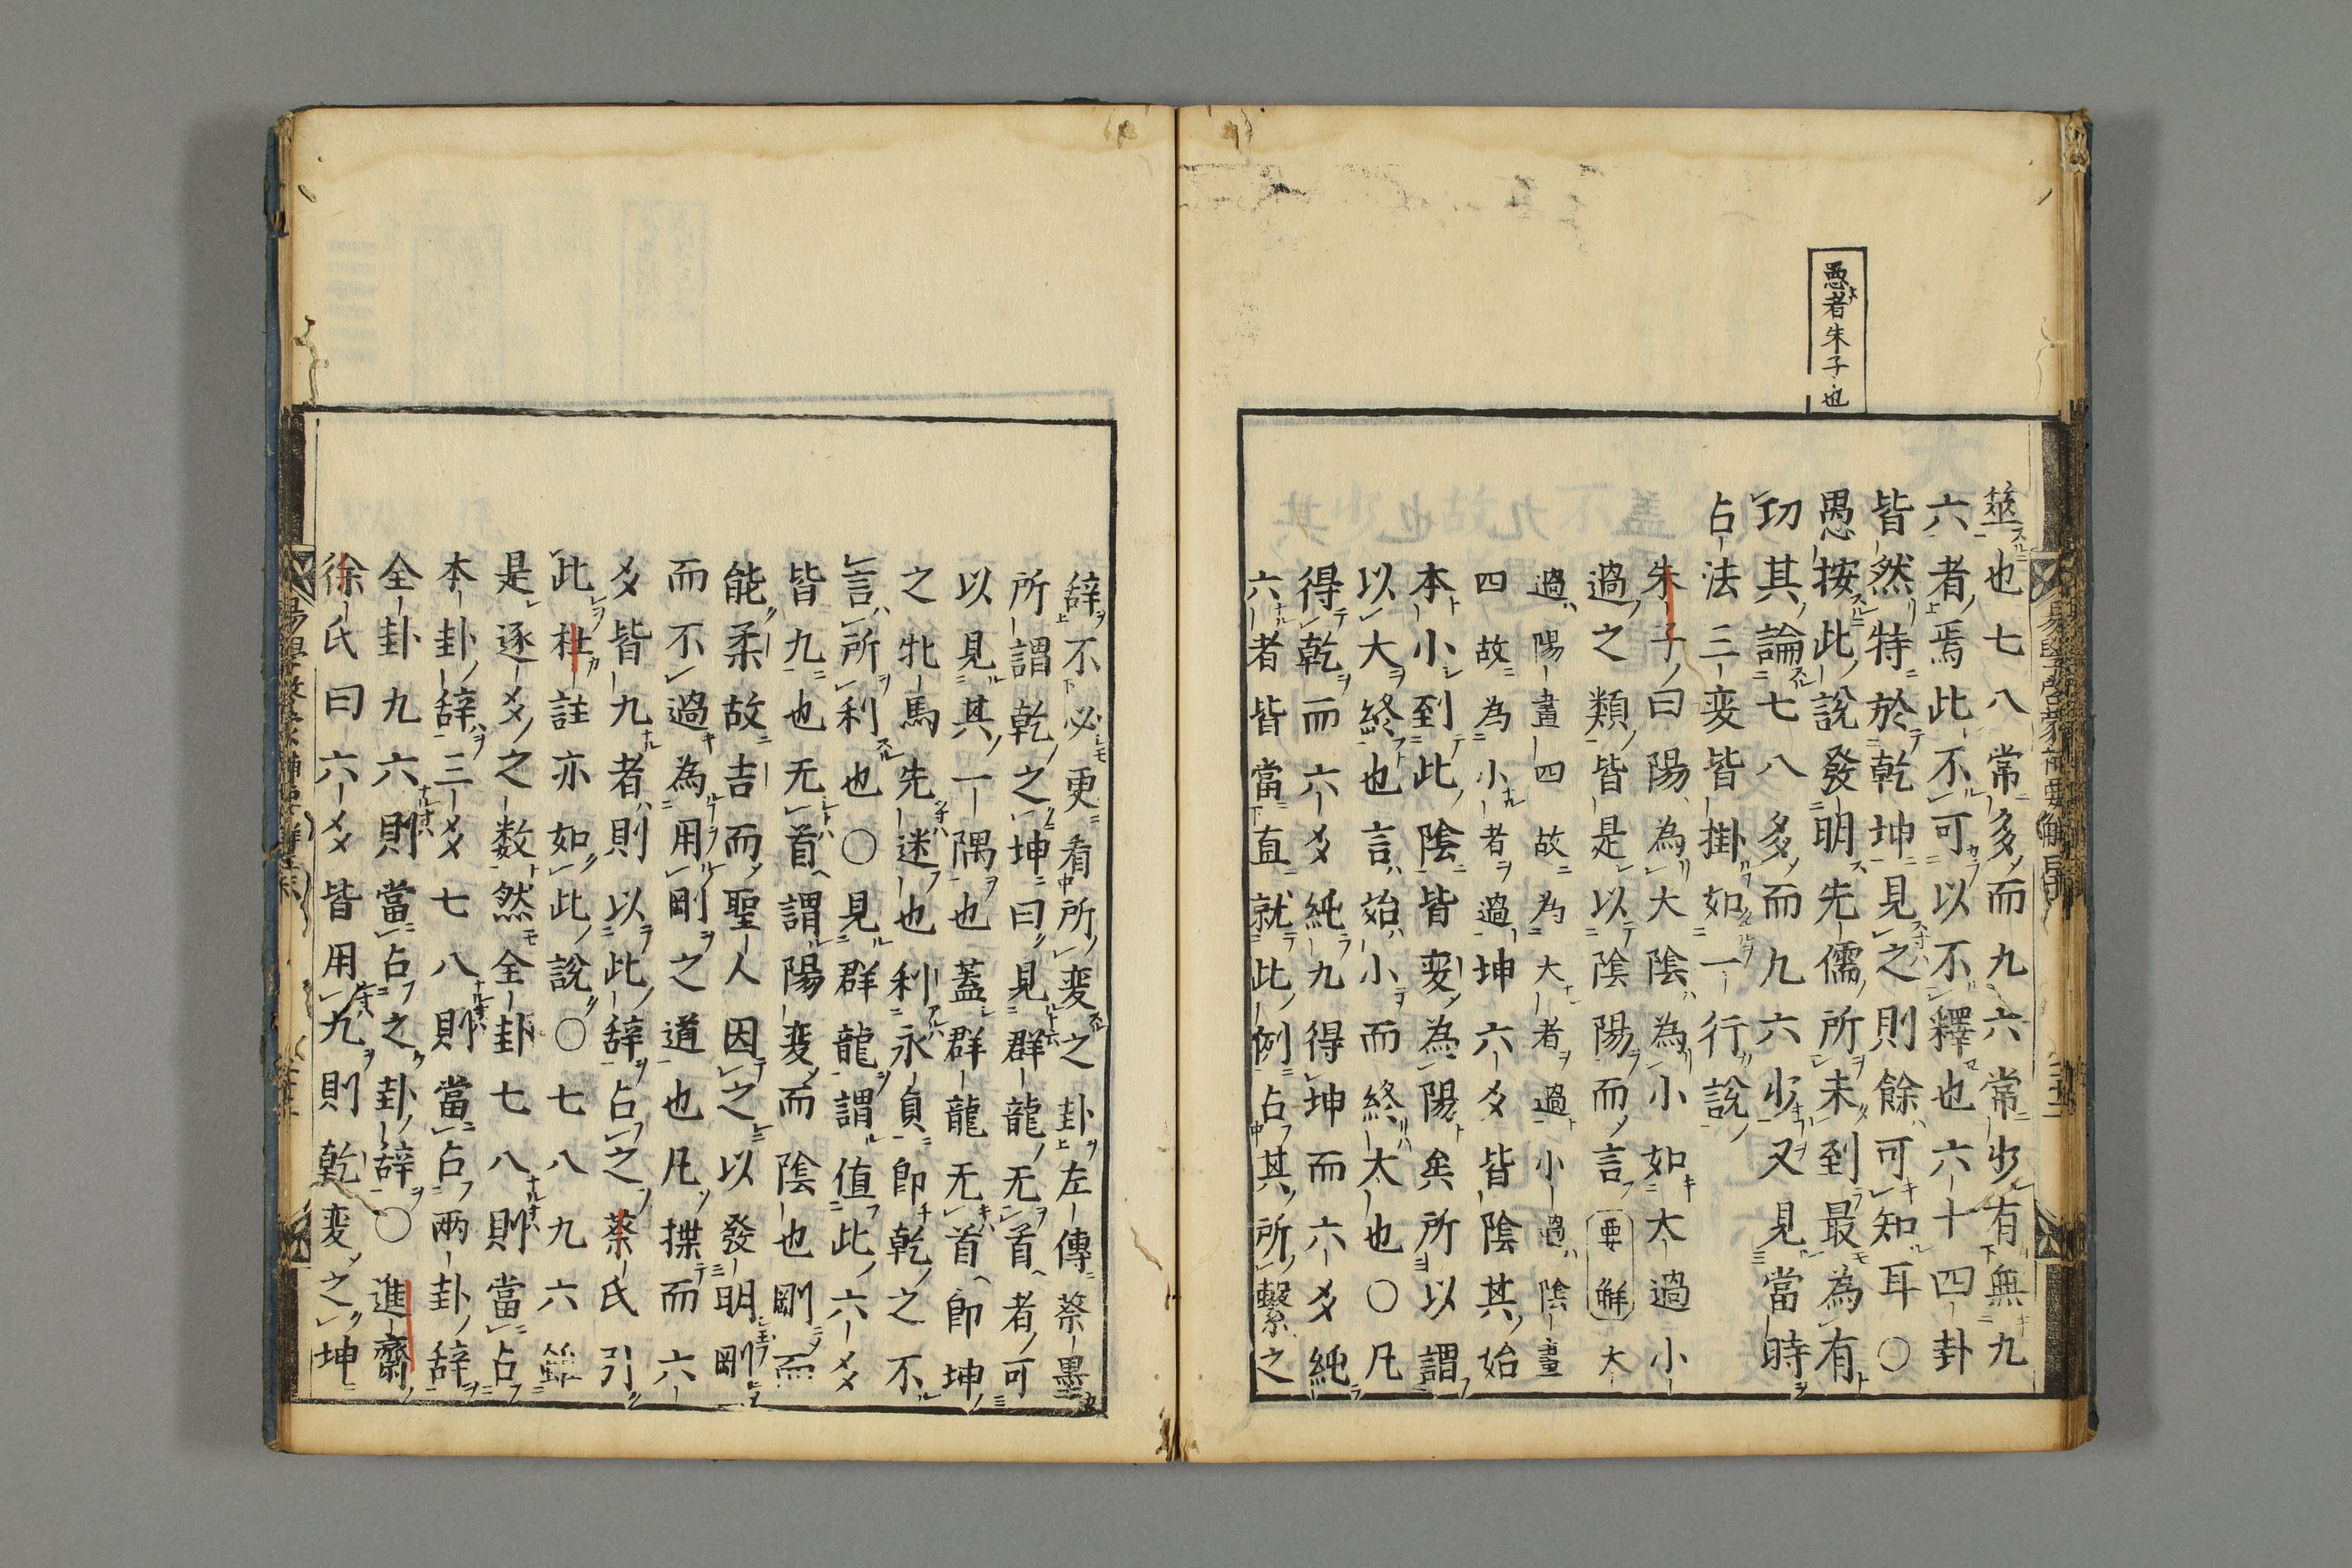 愚者朱子也
筮也七八常多而九六常少有無九
六者焉此不可以不釋也六十四卦
皆然特於乾坤見之則餘可知耳○
愚按此說發明先儒所未到最為有
切其論七八多而九六少又見當時
占法三变皆掛如一行說
朱子曰陽為大陰為小如大過小
過之類皆是以陰陽而言 要解 大
過陽畫四故為大者過小過陰畫
四故為小者過坤六爻皆陰其始
本小到此陰皆变為陽矣所以謂
以大終也言始小而終太也○凡
得乾而六爻純九得坤而六爻純
六者皆當直就此例占其所繫之
辞不必更看所变之卦左傳蔡墨
所謂乾之坤曰見群龍无首者可
以見其一隅也蓋群龍无首即坤
之牝馬先迷也利永貞即乾之不
言所利也○見群龍謂值此六爻
皆九也无首謂陽变而陰也剛而
能柔故吉而聖人因之以發明剛
而不過為用剛之道也凡揲而六
爻皆九者則以此辞占之蔡氏引
此杜註亦如此說○七八九六雖
是逐爻之数然全卦七八則當占
本卦辞三爻七八則當占兩卦辞
全卦九六則當占之卦辞○進齋
徐氏曰六爻皆用九則乾变之坤